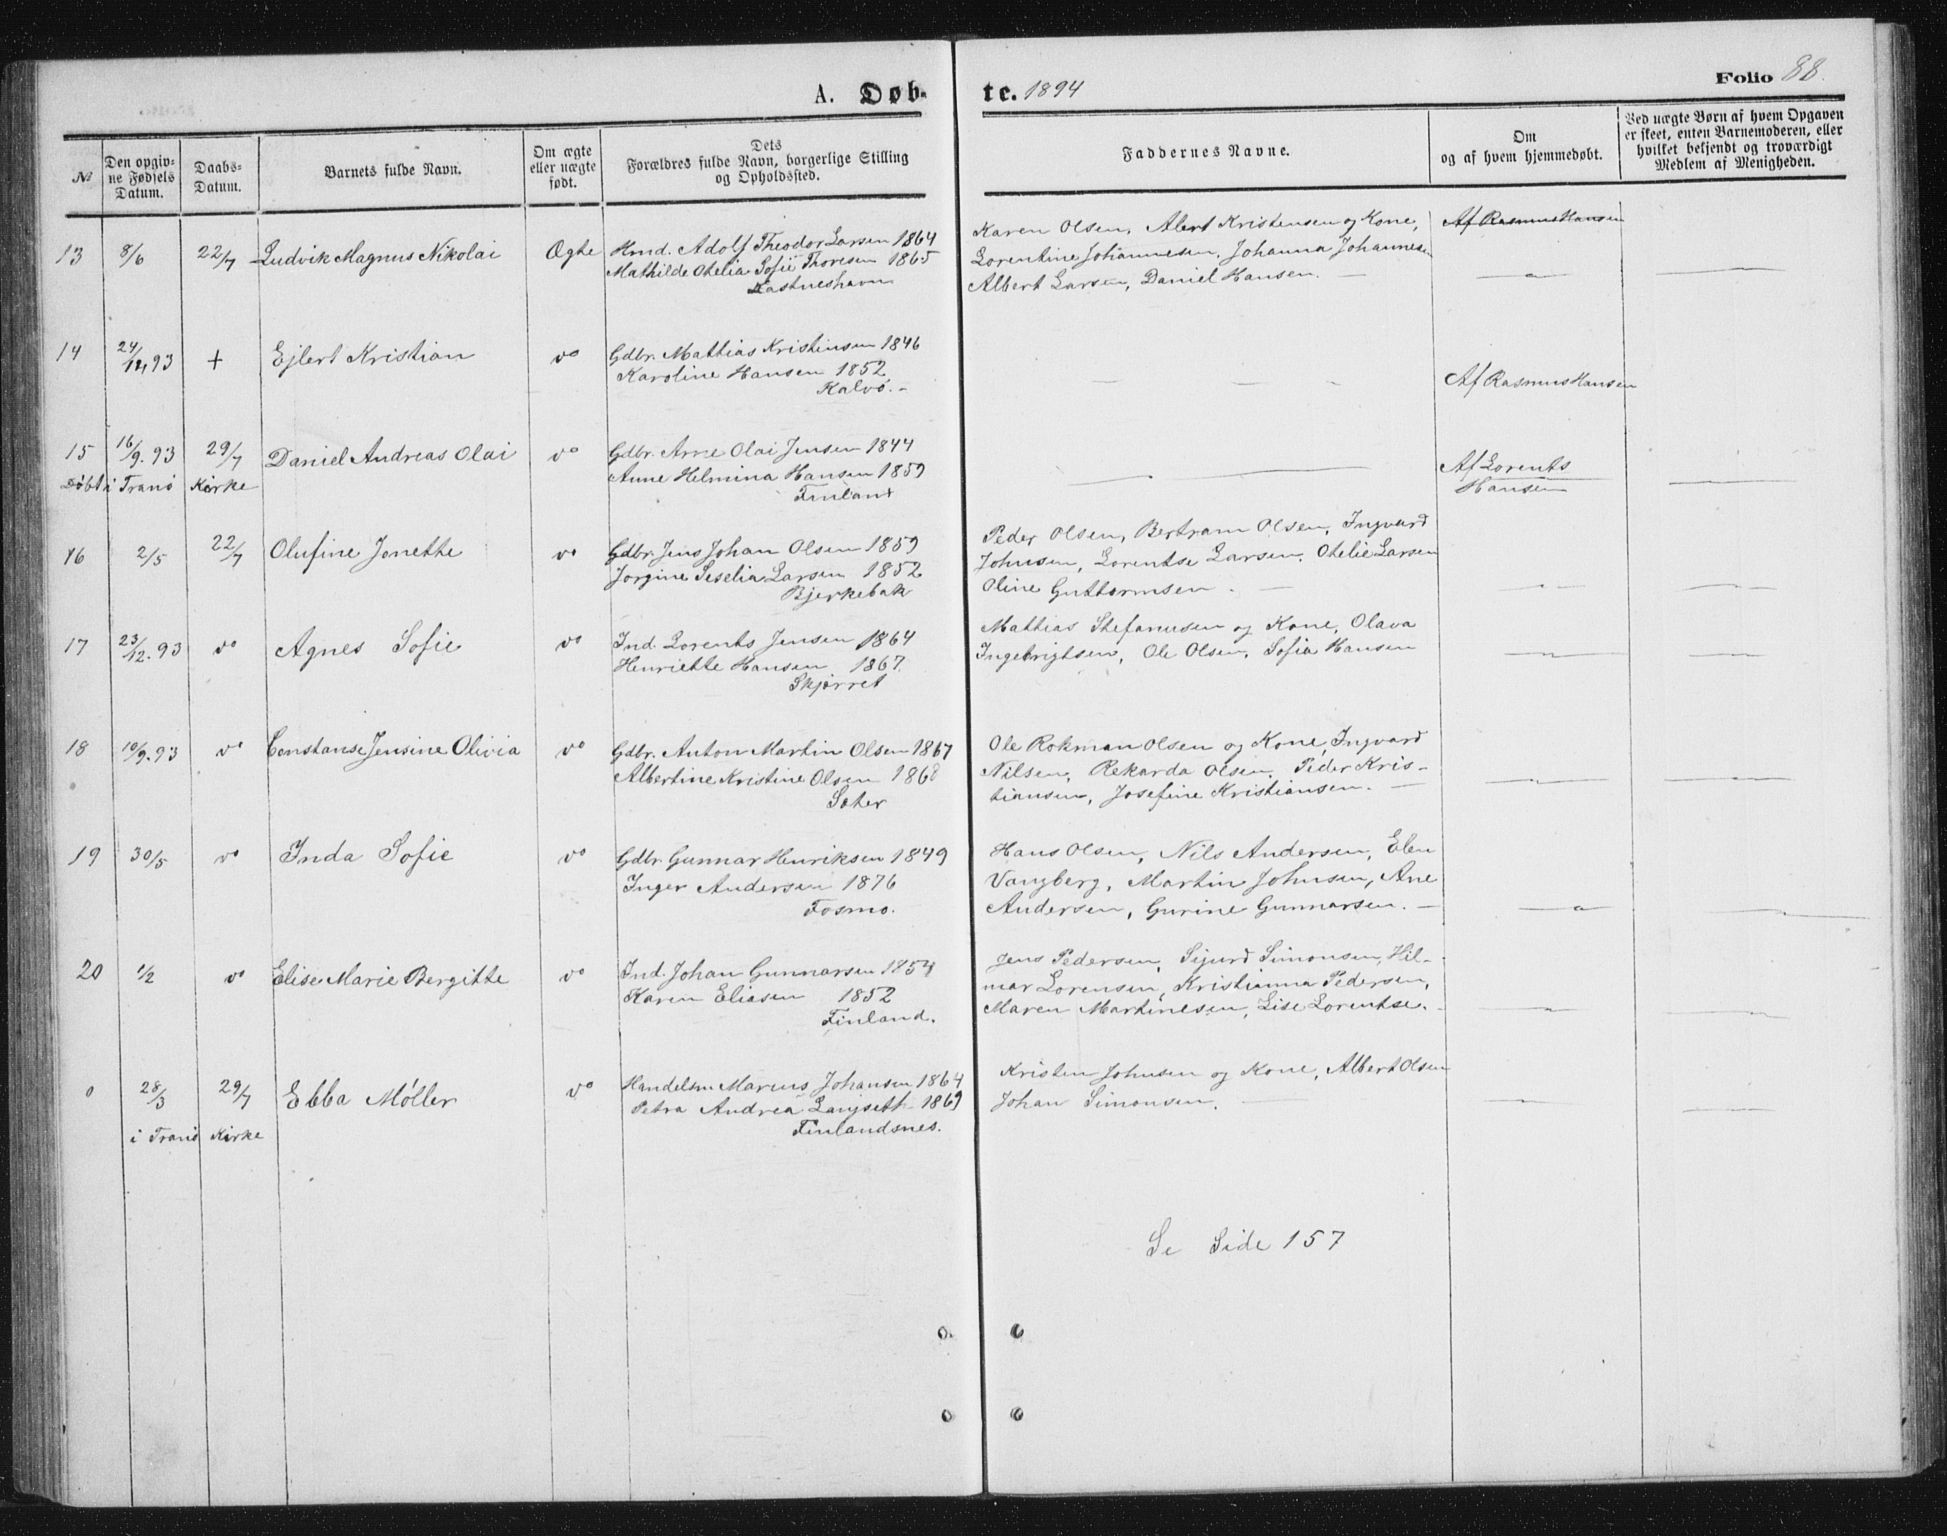 A. Døb-
te. 1894
Folio 88.
№
Den opgiv-
ne Fødsels
Datum.
Daabs-
Datum.
Barnets fulde Navn.
Om ægte
eller uægte
født.
Dets
Forældres fulde Navn, borgerlige Stilling
og Opholdssted.
Faddernes Navne.
Om
og af hvem hjemmedøbt.
Ved uægte Børn af hvem Opgaven
er skeet, enten Barnemoderen, eller
hvilket bekjendt og troværdigt
Medlem af Menigheden.
13 8/6 22/7 Ludvik Magnus Nikolai Ægte
Hmd. Adolf Theodor Larsen 1864
Mathilde Otelia Sofie Thoresen 1865
Karen Olsen, Alert Kristensen og Kone,
Lorentine Johannesen, Johanna Johannesen
Albert Larsen, Daniel Hansen. —
Af Rasmus Hansen
14 24/12.93 + Ejlert Kristian vo
Gdbr. Mattias Kristensen 1846
Karoline Hansen 1852
Kalvø. -
Af Rasmus Hansen
15 16/9.93 29/7 Daniel Andreas Olai vo
Døbt i Tranø Kirke
Gdbr. Arne Olai Jensen 1844
Anne Helmina Hansen 1859
Finland
Af Lorents
Hansen
16 2/5 22/7 Olufine Jonette vo
Gdbr. Jens Johan Olsen 1859
Jorgine Seselia Larsen 1852
Bjerkebak
Peder Olsen, Bertram Olsen, Ingvard
Johnsen, Lorentse Larsen, Otelie Larsen
Oline Guttormsen. —
17 23/12.93 vo Agnes Sofie vo
Ind. Lorents Jensen 1864
Henriette Hansen 1867.
Skjærret
Mattias Stefanusen og Kone, Olava
Ingebrigtsen, Ole Olsen, Sofia Hansen
18 10/9.93 vo Constanse Jensine Olivia vo
Gdbr. Anton Martin Olsen 1867
Albertine Kristine Olsen 1868
Sæter
Ole Rokman Olsen og Kone, Ingvard
Nilsen, Rekarda Olsen, Peder Kris-
tiansen, Josefine Kristiansen. —
19 30/5 vo Inda Sofie vo
Gdbr. Gunnar Henriksen 1849
Inger Andersen 1876
Fosmo.
Hans Olsen, Nils Andersen, Elen
Vangberg, Martin Johnsen, Ane
Andersen, Gurine Gunnarsen. —
20 1/2 vo Elise Marie Bergitte vo
Ind. Johan Gunnarsen 1854
Karen Eliasen 1852
Finland.
Jens Pedersen, Sigurd Simonsen, Hil-
mar Lorensen, Kristianna Pedersen,
Maren Martinesen, Lise Lorentse.
0 28/3 29/7 Ebba Møller vo
i Tranø Kirke
Handelsm Marius Johansen 1864
Petra Andrea Langseth 1869
Finlandsnes.
Kristen Johnsen og Kone, Albert Olsen
Johan Simonsen. —
Se Side 157